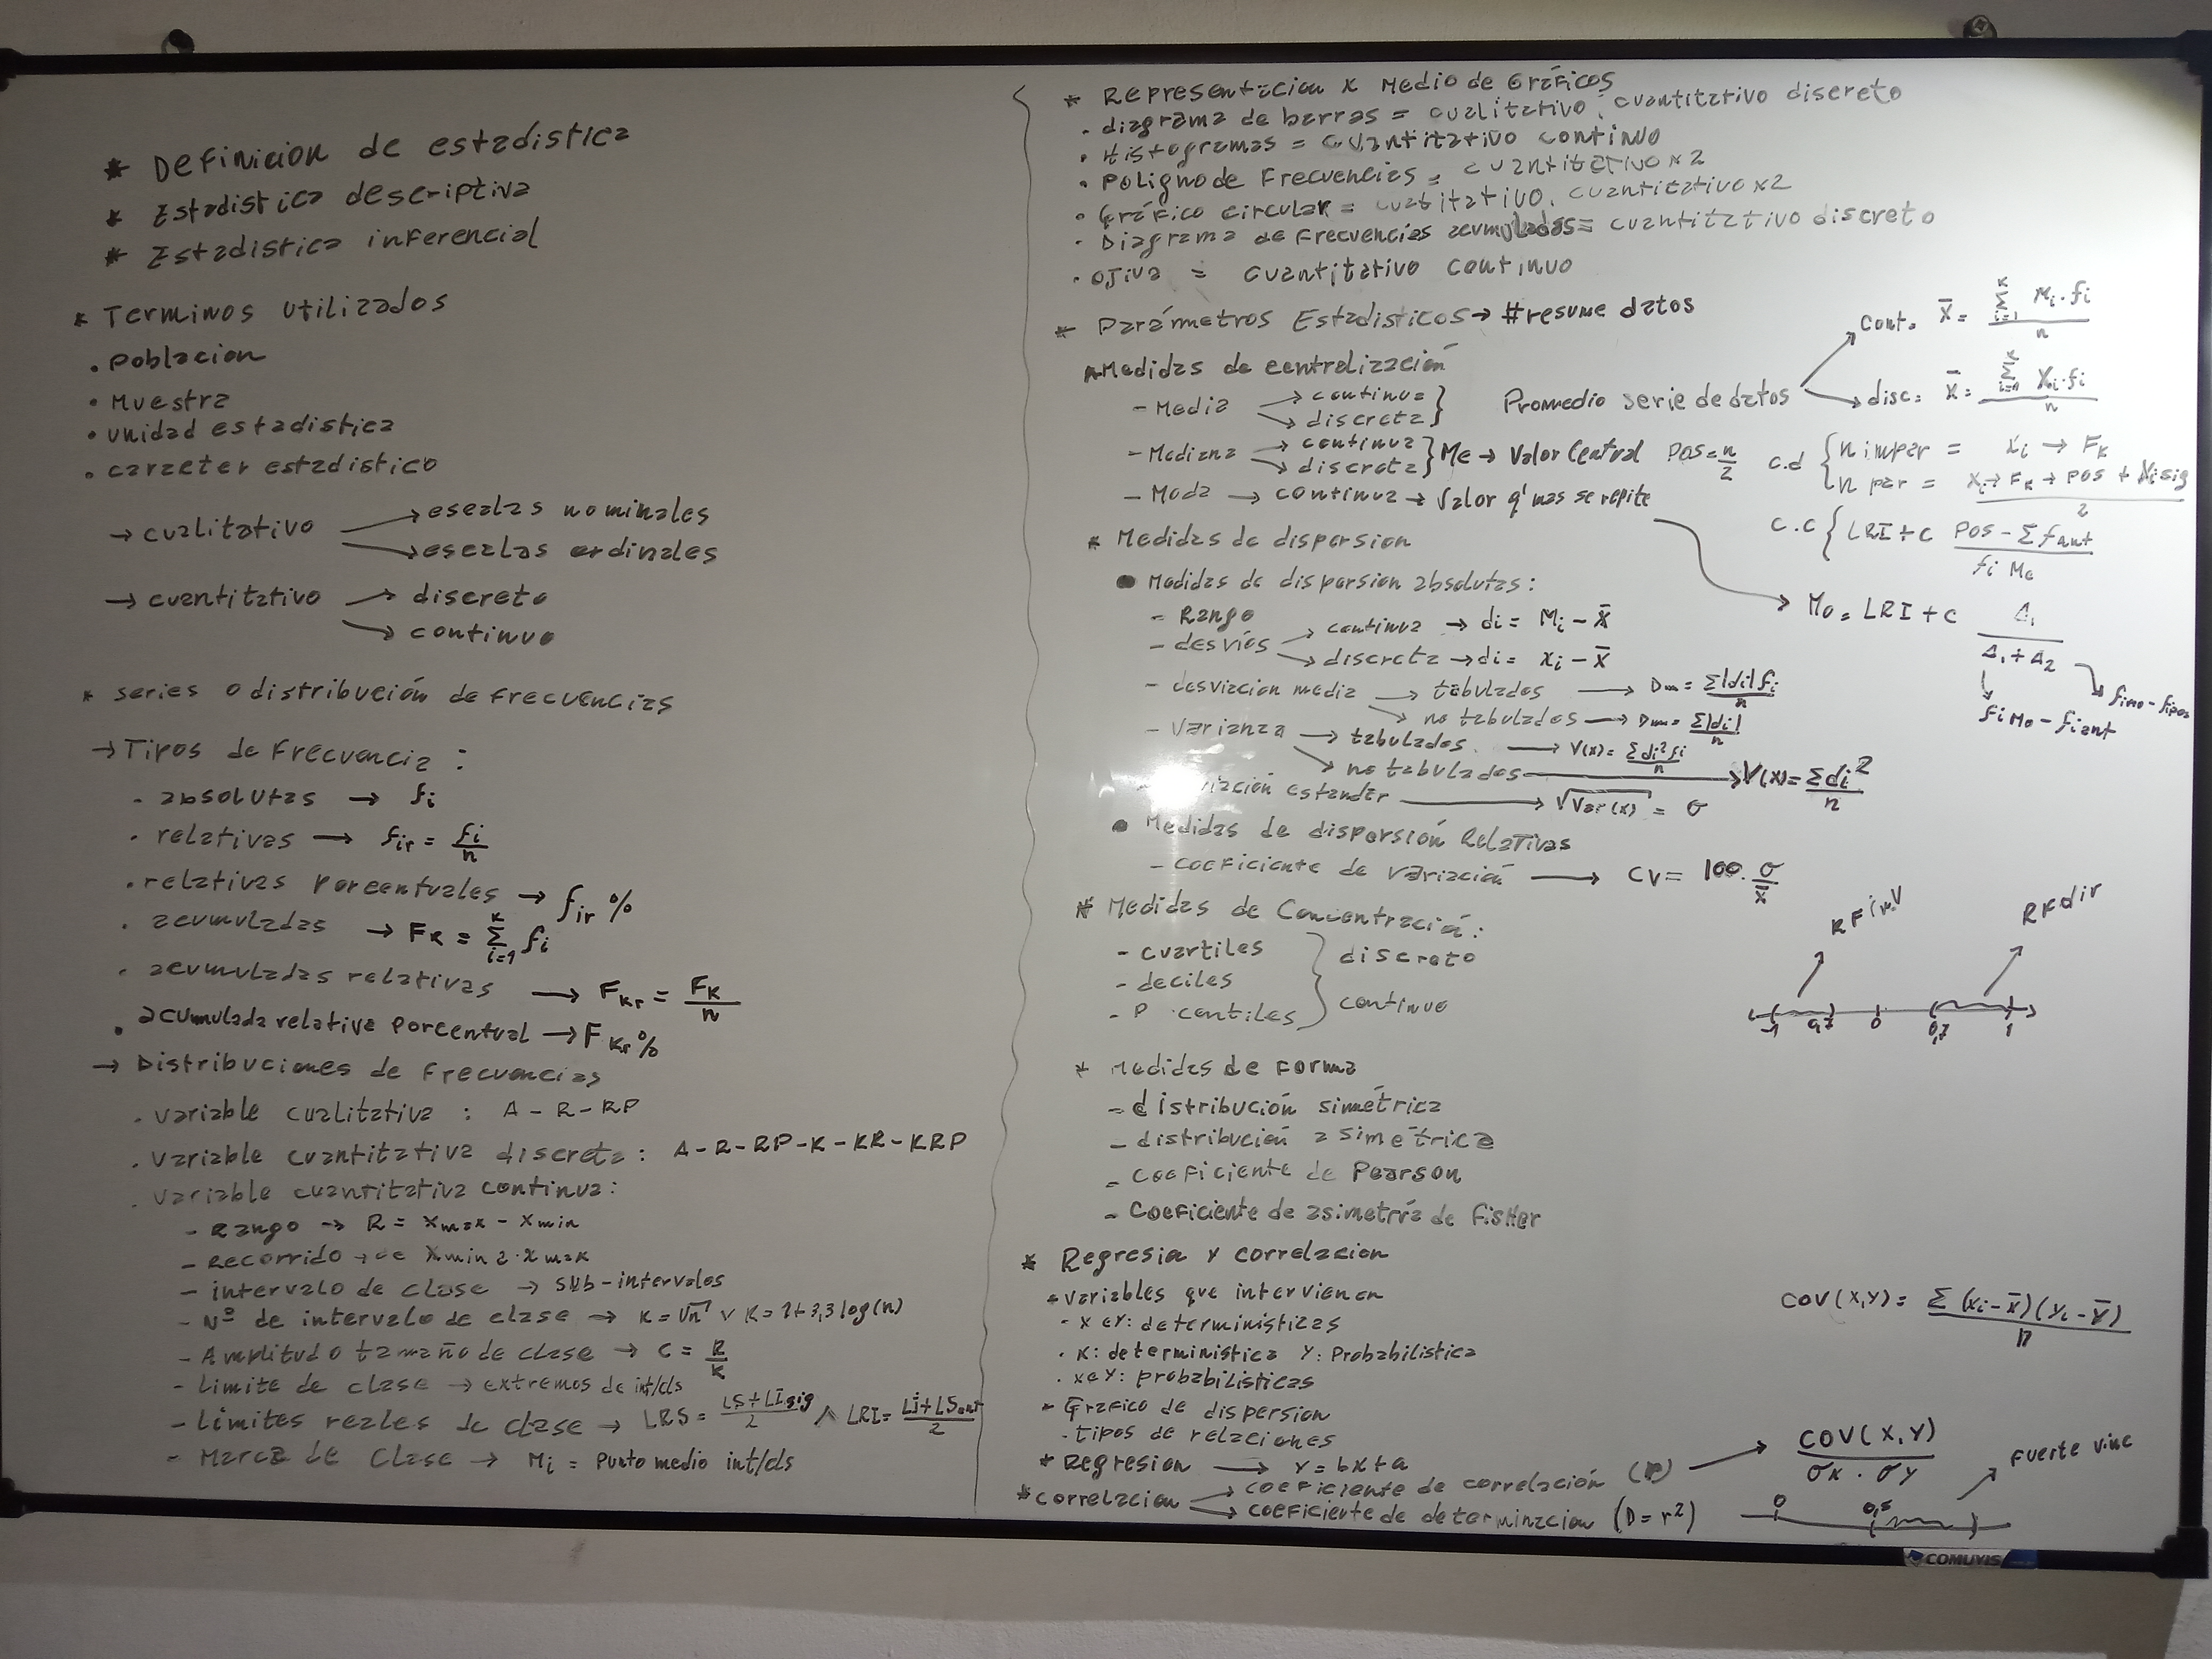 * Definicion de estadistica
* Estadistica descriptiva
* Estadistica inferencial
* Terminos utilizados
. poblacion
. Muestra
. unidad estadistica
. caracter estadistico
→ cualitativo → escalas nominales
→ escalas ordinales
→ cuantitativo → discreto
→ continuo
* series o distribución de frecuencias
→ Tipos de frecuencia :
. absolutas → fi
. relativas → fir = fi/n
. relativas porcentuales → fir %
. acumuladas → FK = Σ(i=1..K) fi
. acumuladas relativas → FKr = FK/n
. acumulada relativa porcentual → FKr %
→ Distribuciones de frecuencias
. variable cualitativa : A - R - RP
. variable cuantitativa discreta : A - R - RP - K - KR - KRP
. variable cuantitativa continua :
- Rango → R = xmax - xmin
- Recorrido → de Xmin a xmax
- intervalo de clase → sub-intervalos
- Nº de intervalo de clase → K = √n ∨ K = 1 + 3,3 log(n)
- Amplitud o tamaño de clase → C = R/K
- Limite de clase → extremos de int/cls
- Límites reales de clase → LRS = (LS + LIsig)/2 ∧ LRI = (Li + LSant)/2
- Marca de Clase → Mi = Punto medio int/cls
* Representacion x Medio de Gráficos
. diagrama de barras = cualitativo . cuantitativo discreto
. Histogramas = cuantitativo continuo
. Poligno de Frecuencias = cuantitativo x2
. Gráfico circular = cualitativo . cuantitativo x2
. Diagrama de frecuencias acumuladas = cuantitativo discreto
. ojiva = cuantitativo continuo
* Parámetros Estadisticos → #resume datos
Medidas de centralización
- Media → continua → discreta } Promedio serie de datos → cont. x̄ = Σ(i=1..K) Mi . fi / n
→ disc: x̄ = Σ(i=1..K) Xi . fi / n
- Mediana → continua → discreta } Me → Valor Central Pos = n/2 c.d { n impar = xi → FK
n par = (xi → FK → pos + Xi sig)/2
c.c { LRI + C (Pos - Σ fant)/(fi Me)
- Moda → continua → Valor q' mas se repite → Mo = LRI + C Δ1/(Δ1 + Δ2)
fi Mo - fi ant
fimo - fipos
* Medidas de dispersion
● Medidas de dispersion absolutas :
- Rango
- desvios → continua → di = Mi - x̄
→ discreta → di = xi - x̄
- desviacion media → tabulados → Dm = Σ|di| fi / n
→ no tabulados → Dm = Σ|di| / n
- Varianza → tabulados . → V(x) = Σ di² fi / n
→ no tabulados → V(x) = Σ di² / n
estandar → √Var(x) = σ
● Medidas de dispersión Relativas
- coeficiente de variación → CV = 100 . σ/x̄
* Medidas de Concentración :
- cuartiles
- deciles
- P centiles
} discreto
continuo
RF inv
RF dir
-1 0,7 0 0,7 1
* Medidas de forma
- distribución simétrica
- distribución asimétrica
- coeficiente de Pearson
- Coeficiente de asimetría de fisher
* Regresia y correlacion
- variables que intervienen
. x e Y: deterministicas
. X: deterministica Y: Probabilistica
. x e Y: probabilisticas
- Grafico de dispersion
- tipos de relaciones
COV(X,Y) = Σ (xi - x̄)(yi - ȳ) / n
* Regresion → Y = bx + a
* correlacion → coeficiente de correlación (r) → COV(X,Y) / σX . σY
→ coeficiente de determinacion (D = r²)
0 0,5 1
fuerte vinc
COMUVIS